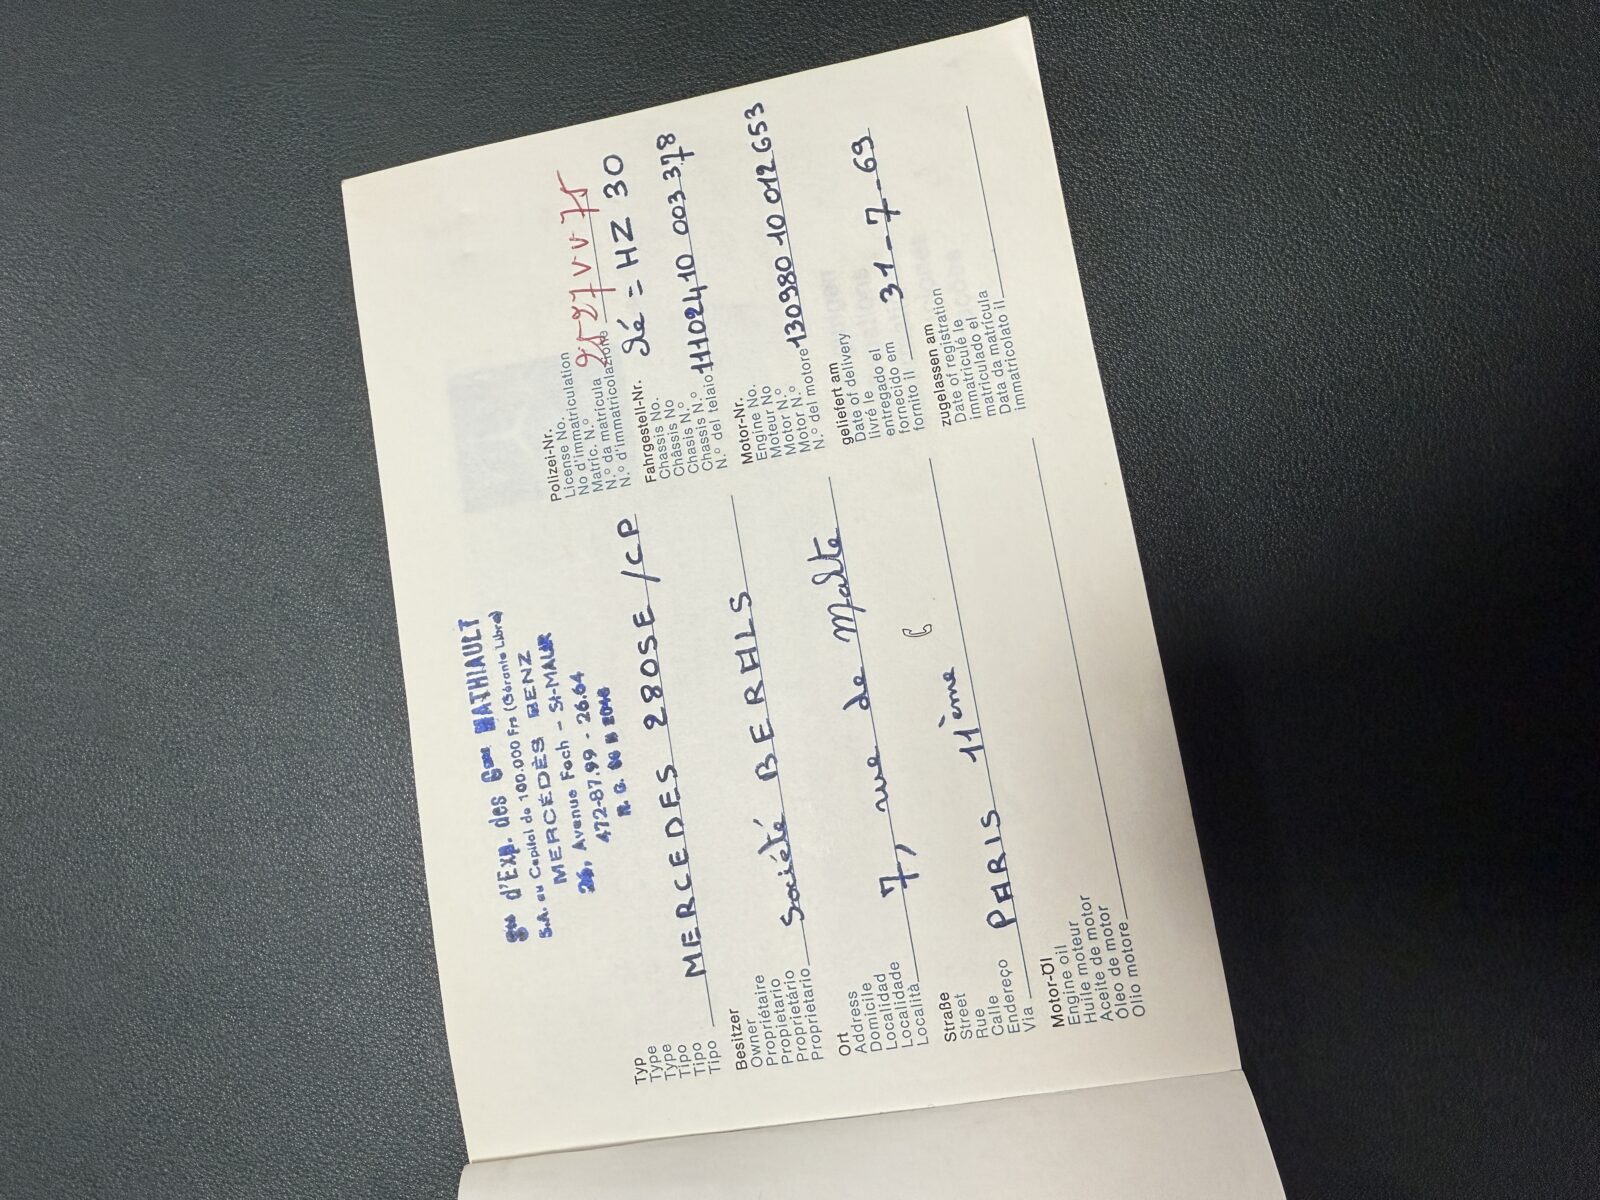 d'Exp. des MATHIAULT
S.A. au Capital de 100.000 Frs (Gérante Libre)
MERCÉDÈS BENZ
26, Avenue Foch - St-MAUR
472-87.99 - 26.64
Typ
Type
Type
Tipo
Tipo
Tipo
MERCEDES 280SE/CP
Besitzer
Owner
Propriétaire
Propietario
Proprietário
Proprietario
Société BERALS
Ort
Address
Domicile
Localidad
Localidade
Località
7, rue de Malte
Straße
Street
Rue
Calle
Endereço
Via
PARIS 11ème
Motor-Öl
Engine oil
Huile moteur
Aceite de motor
Óleo de motor
Olio motore
Polizei-Nr.
License No.
No d'immatriculation
Matric. N.º
N.º da matrícula
N.º d'immatricolazione
2527 VV 75
Clé = HZ 30
Fahrgestell-Nr.
Chassis No.
Châssis No
Chasis N.º
Chassis N.º
N.º del telaio
11102410 003 378
Motor-Nr.
Engine No.
Moteur No
Motor N.º
Motor N.º
N.º del motore
130980 10 012653
geliefert am
Date of delivery
livré le
entregado el
fornecido em
fornito il
31-7-69
zugelassen am
Date of registration
immatriculé le
matriculado el
Data da matrícula
immatricolato il